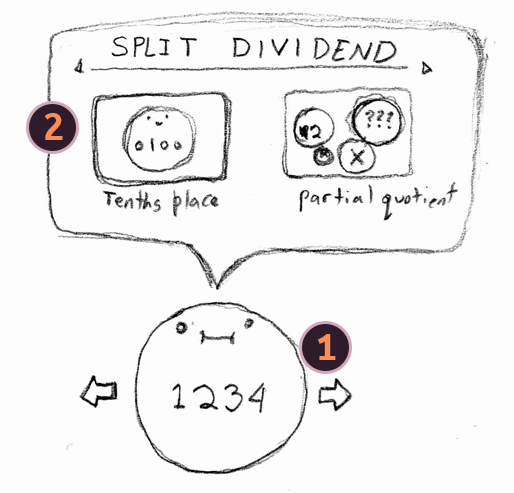 SPLIT DIVIDEND
2
0100
÷2
???
×
Tenths place
partial quotient
1
1234